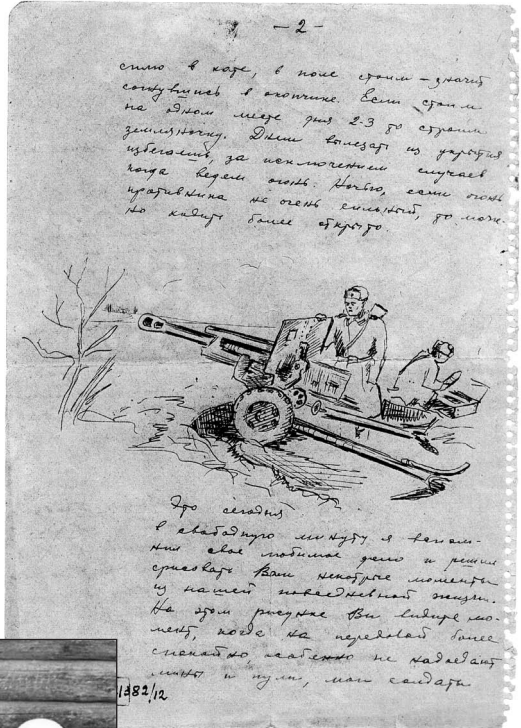 — 2 —
сплю в хате, в поле стоим – значит
согнувшись в окопчике. Если стоим
на одном месте дня 2-3 то строим
земляночку. Днем вылезать из укрытия
избегаешь, за исключением случаев
когда ведем огонь. Ночью, если огонь
противника не очень сильный, то мож-
но ходить более открыто.
Это сегодня
в свободную минуту я вспом-
нил свое любимое дело и решил
срисовать Вам некотрые моменты
из нашей повседневной жизни.
На этом рисунке Вы видите мо-
мент, когда на передовой более
спокойно, особенно не надоедают
мины и пули, мои солдаты
1382/12